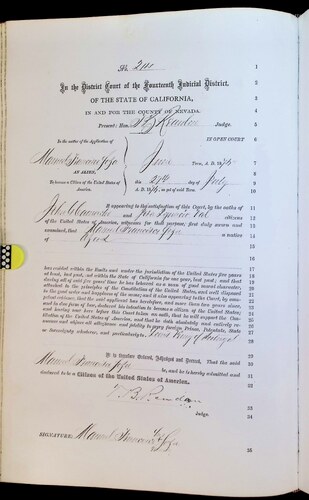 No. 211 1
In the District Court of the Fourteenth Judicial District, 2
OF THE STATE OF CALIFORNIA, 3
IN AND FOR THE COUNTY OF NEVADA. 4
Present: Hon. T B Reardon Judge. 5
In the matter of the Application of IN OPEN COURT 6
Manuel Francisco June Term, A. D. 187 7
AN ALIEN, 8
To become a Citizen of the United States of this day of July 9
America. A. D. 187 , as yet of said Term. 10
11
It appearing to the satisfaction of this Court, by the oaths of 12
John and citizens 13
of the United States of America, witnesses for that purpose, first duly sworn and 14
examined, that Manuel Francisco a native 15
of 16
17
18
has resided within the limits and under the jurisdiction of the United States five years 19
at least, last past, and within the State of California for one year, last past; and that 20
during all of said five years' time he has behaved as a man of good moral character, 21
attached to the principles of the Constitution of the United States, and well disposed 22
to the good order and happiness of the same; and it also appearing to the Court, by com- 23
petent evidence, that the said applicant has heretofore, and more than two years since, 24
and in due form of law, declared his intention to become a citizen of the United States; 25
and having now here before this Court taken an oath, that he will support the Consti- 26
tution of the United States of America, and that he doth absolutely and entirely re- 27
nounce and abjure all allegiance and fidelity to every Foreign Prince, Potentate, State
or Sovereignty whatever, and particularly to King of Portugal
It is therefore Ordered, Adjudged and Decreed, That the said
Manuel Francisco be, and he is hereby admitted and
declared to be a Citizen of the United States of America.
T. B. Reardon 33
Judge. 34
SIGNATURE: Manuel Francisco 35